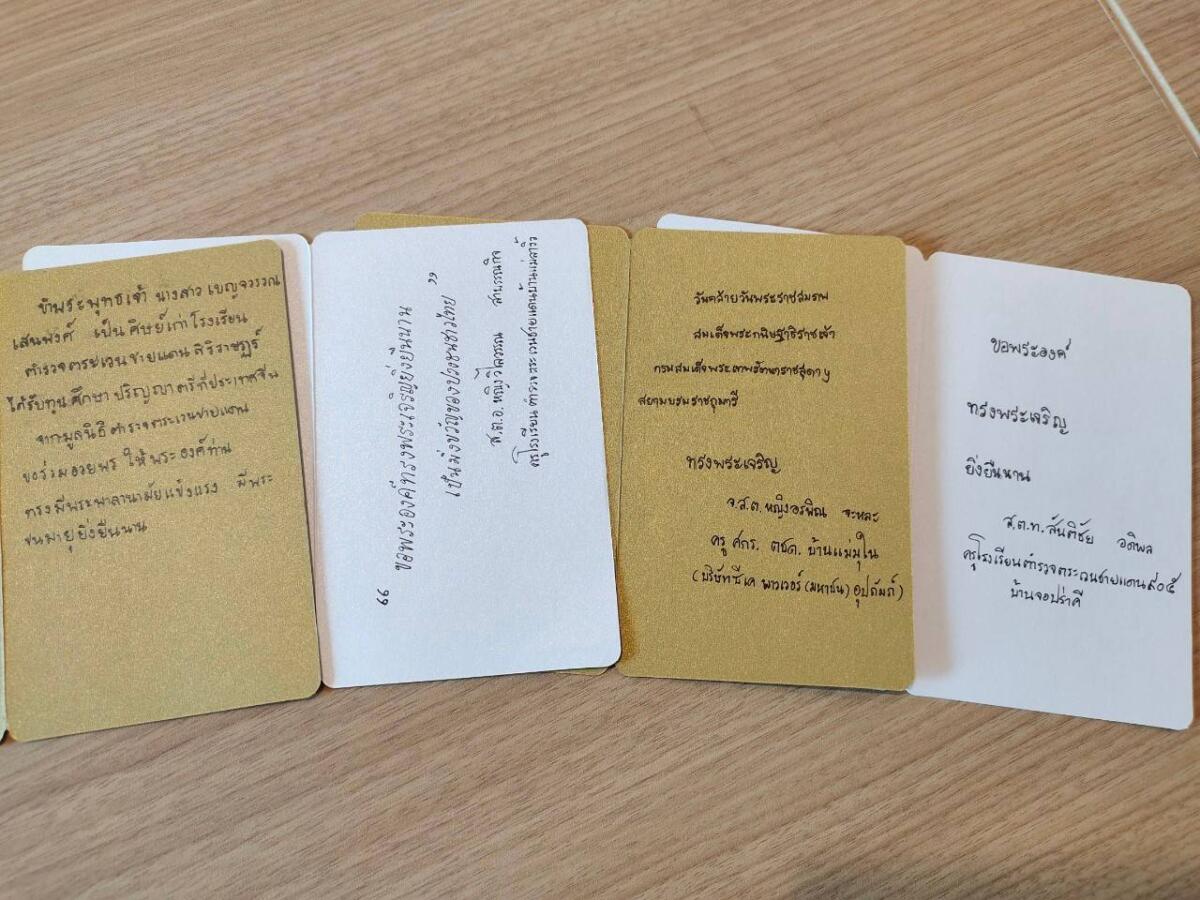 ข้าพระพุทธเจ้า นางสาว เบญจวรรณ
เสนพงศ์ เป็นศิษย์เก่าโรงเรียน
ตำรวจตระเวนชายแดน สิริราษฎร์
ได้รับทุนศึกษา ปริญญาตรีที่ประเทศจีน
จากมูลนิธิตำรวจตระเวนชายแดน
ขอร่วมอวยพร ให้พระองค์ท่าน
ทรงมีพระพลานามัยแข็งแรง มีพระ
ชนมายุยิ่งยืนนาน
“ ขอพระองค์ทรงพระเจริญยิ่งยืนนาน
เป็นมิ่งขวัญของปวงชนชาวไทย ”
ส.ต.อ. หญิงวิไลวรรณ สาบรรณกิจ
ครูโรงเรียนตำรวจตระเวนชายแดนบ้าน
วันคล้ายวันพระราชสมภพ
สมเด็จพระกนิษฐาธิราชเจ้า
กรมสมเด็จพระเทพรัตนราชสุดาฯ
สยามบรมราชกุมารี
ทรงพระเจริญ
จ.ส.ต.หญิงอรพิณ จะหละ
ครู ศกร. ตชด. บ้านแม่มุใน
(บริษัททีเค พาวเวอร์ (มหาชน) อุปถัมภ์)
ขอพระองค์
ทรงพระเจริญ
ยิ่งยืนนาน
ส.ต.ท. สันติชัย อดิพล
ครูโรงเรียนตำรวจตระเวนชายแดน๙๐๕
บ้านจอปร่าคี